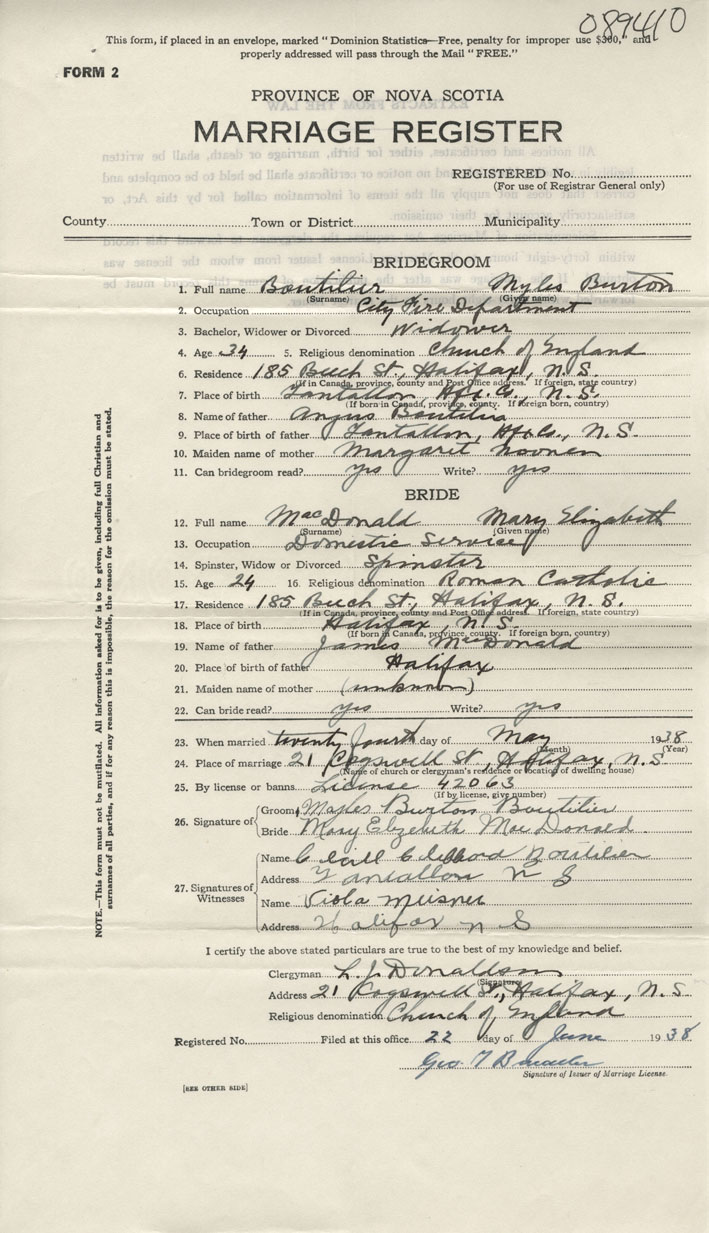 089410
This form, if placed in an envelope, marked "Dominion Statistics—Free, penalty for improper use $300," and
properly addressed will pass through the Mail "FREE."
FORM 2
PROVINCE OF NOVA SCOTIA
MARRIAGE REGISTER
REGISTERED No.
(For use of Registrar General only)
County Town or District Municipality
BRIDEGROOM
1. Full name Boutilier Myles Burton
(Surname) (Given name)
2. Occupation City Fire Department
3. Bachelor, Widower or Divorced Widower
4. Age 34 5. Religious denomination Church of England
6. Residence 185 Beech St., Halifax, N.S.
(If in Canada, province, county and Post Office address. If foreign, state country)
7. Place of birth Tantallon, Hfx. Co., N.S.
(If born in Canada, province, county. If foreign born, country)
8. Name of father Angus Boutilier
9. Place of birth of father Tantallon, Hfx Co., N.S.
10. Maiden name of mother Margaret Noonen
11. Can bridegroom read? yes Write? yes
BRIDE
12. Full name MacDonald Mary Elizabeth
(Surname) (Given name)
13. Occupation Domestic Service
14. Spinster, Widow or Divorced Spinster
15. Age 24 16. Religious denomination Roman Catholic
17. Residence 185 Beech St., Halifax, N.S.
(If in Canada, province, county and Post Office address. If foreign, state country)
18. Place of birth Halifax, N.S.
(If born in Canada, province, county. If foreign born, country)
19. Name of father James MacDonald
20. Place of birth of father Halifax
21. Maiden name of mother (unknown)
22. Can bride read? yes Write? yes
23. When married twenty fourth day of May 1938
(Month) (Year)
24. Place of marriage 21 Cogswell St., Halifax, N.S
(Name of church or clergyman's residence or location of dwelling house)
25. By license or banns License 42063
(If by license, give number)
26. Signature of
Groom Myles Burton Boutilier
Bride Mary Elizabeth MacDonald
27. Signatures of Witnesses
Name Clifford Boutilier
Address Tantallon N S
Name Viola Meisner
Address Halifax N S
I certify the above stated particulars are true to the best of my knowledge and belief.
Clergyman L. J. Donaldson
(Signature)
Address 21 Cogswell St., Halifax, N.S
Religious denomination Church of England
Registered No. Filed at this office 22 day of June 1938
Geo T
Signature of Issuer of Marriage License.
[SEE OTHER SIDE]
NOTE.—This form must not be mutilated. All information asked for is to be given, including full Christian and
surnames of all parties, and if for any reason this is impossible, the reason for the omission must be stated.